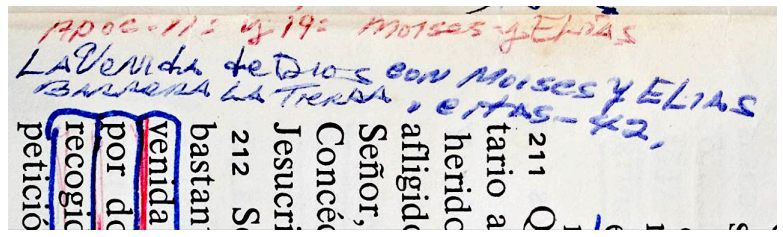 Apoc-11: y 19: Moises-y ELiAs
LA VeNida de Dios con Moises y ELIAS
BARRERA LA TIERRA, e HAS-42,
211 Q
tario a
herido
afligido
Señor,
Concéd
Jesucri
212 Se
bastan
venida
por do
recogid
petició